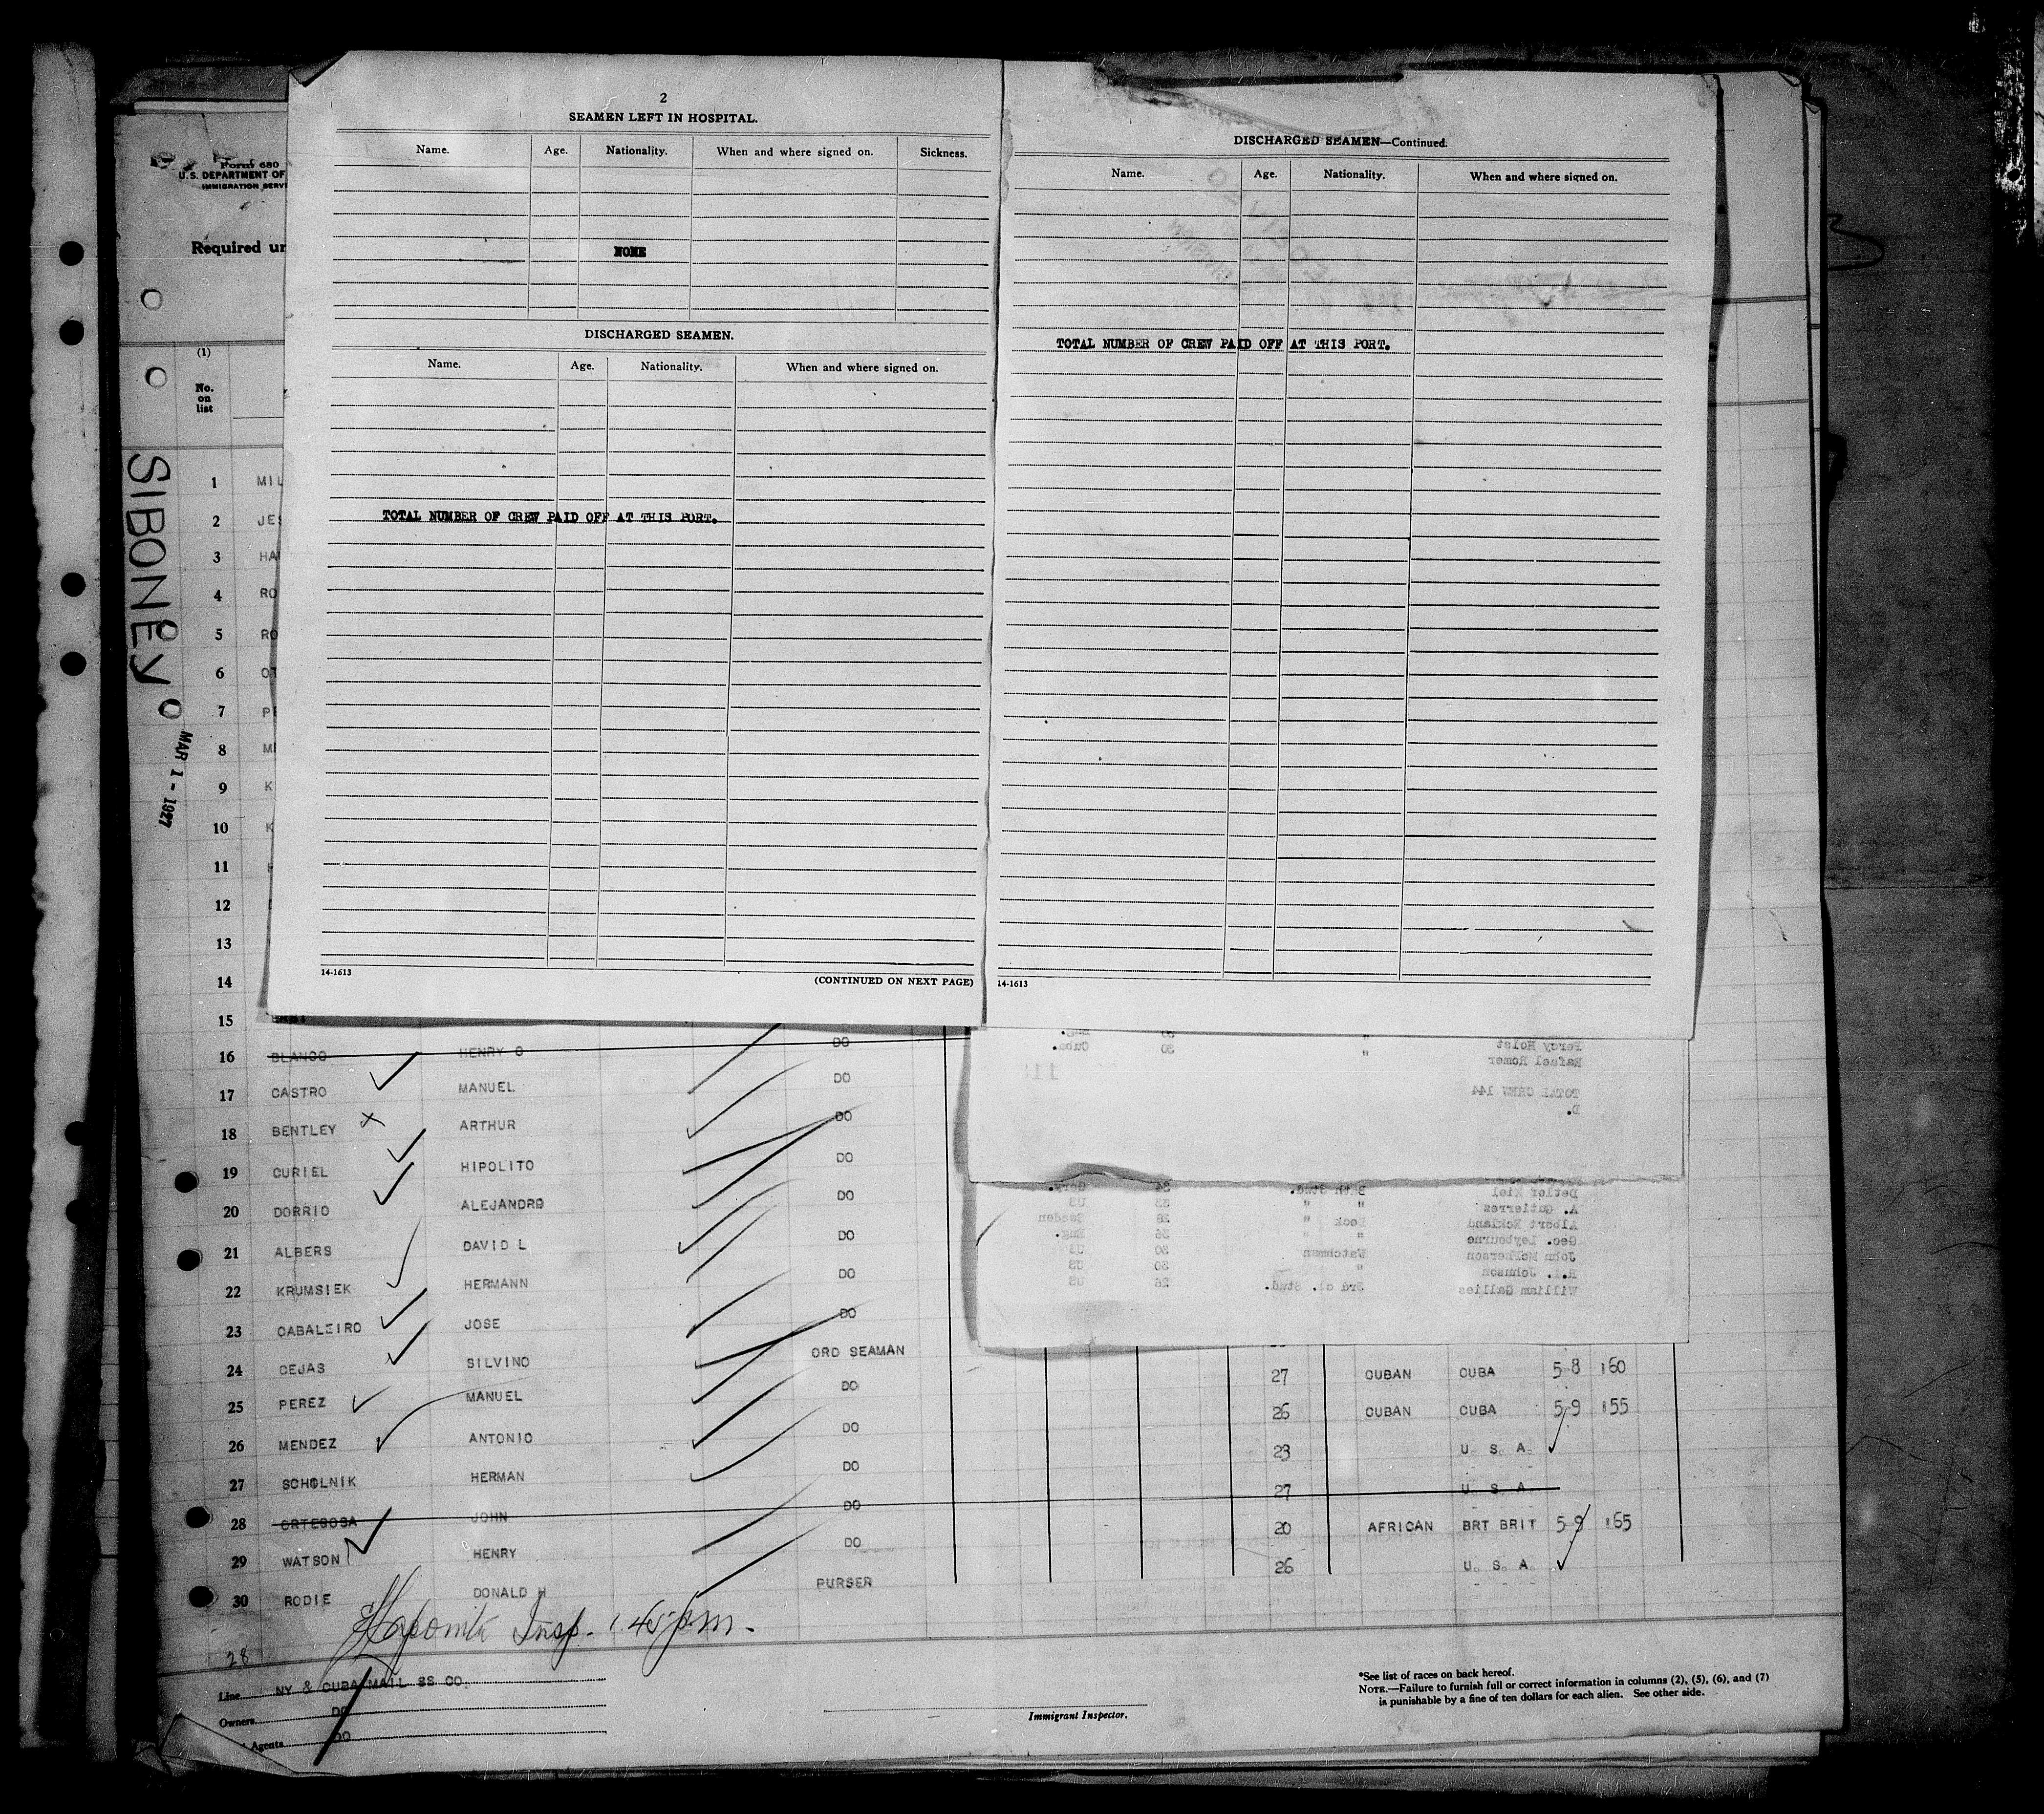 2
SEAMEN LEFT IN HOSPITAL.
Name. Age. Nationality. When and where signed on. Sickness.
NONE
DISCHARGED SEAMEN.
Name. Age. Nationality. When and where signed on.
TOTAL NUMBER OF CREW PAID OFF AT THIS PORT.
14-1613
(CONTINUED ON NEXT PAGE)
DISCHARGED SEAMEN—Continued.
Name. Age. Nationality. When and where signed on.
TOTAL NUMBER OF CREW PAID OFF AT THIS PORT.
14-1613
Form 680
U.S. DEPARTMENT OF
IMMIGRATION SERV
Required un
(1)
No.
on
list
SIBONEY
MAR 1 - 1927
1 MIL
2 JES
3 HA
4 RO
5 RO
6 OT
7 P
8 M
9 K
10 K
11
12
13
14
15
16 BLANCO HENRY O DO
17 CASTRO MANUEL DO
18 BENTLEY ARTHUR DO
19 CURIEL HIPOLITO DO
20 DORRIO ALEJANDRO DO
21 ALBERS DAVID L DO
22 KRUMSIEK HERMANN DO
23 CABALEIRO JOSE DO
24 CEJAS SILVINO ORD SEAMAN 27 CUBAN CUBA 5-8 160
25 PEREZ MANUEL DO 26 CUBAN CUBA 5-9 155
26 MENDEZ ANTONIO DO 23 U. S. A.
27 SCHOLNIK HERMAN DO 27 U S A
28 ORTEGOSA JOHN DO 20 AFRICAN BRT BRIT 5-9 165
29 WATSON HENRY DO 26 U. S. A.
30 RODIE DONALD H PURSER
Insp. 1.45 p.m.
28
Line NY & CUBA MAIL SS CO.
Owners DO
Agents DO
Percy Holst " 30
Rafael Romer " 30 Cuba.
TOTAL CREW 144
D.
Detlef Kiel
A. Gutierres " " 33 US
Albert Eckland Deck " 28 Sweden
Geo. Leybourne " " 36 Eng.
John McPherson Watchman 30 US
H.I. Johnson " 30 US
William Gallies 3rd cl. Stud. 26 US
Immigrant Inspector.
*See list of races on back hereof.
NOTE.—Failure to furnish full or correct information in columns (2), (5), (6), and (7)
is punishable by a fine of ten dollars for each alien. See other side.